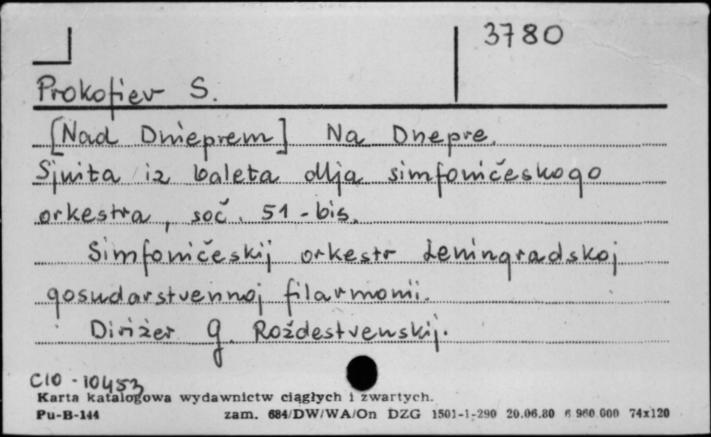 3780
Prokofiev S.
[Nad Dnieprem] Na Dnepre.
Sjuita iz baleta dlja simfoničeskogo
orkestra, soč. 51-bis.
Simfoničeskij orkestr Leningradskoj
gosudarstvennoj filarmonii.
Dirižer G. Roždestvenskij.
C10-10453
Karta katalogowa wydawnictw ciągłych i zwartych.
Pu-B-144 zam. 684/DW/WA/On DZG 1501-1-290 20.06.80 6 960 000 74x120